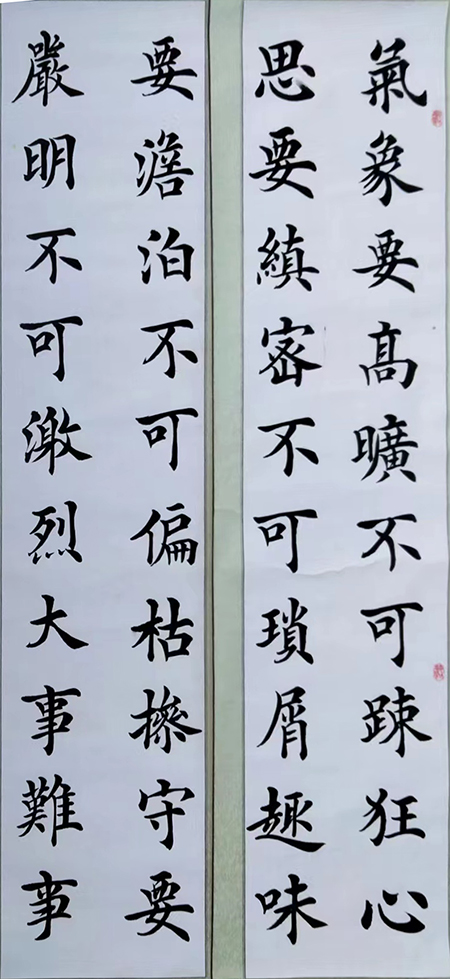 氣象要高曠不可疎狂心
思要縝密不可瑣屑趣味
要澹泊不可偏枯摻守要
嚴明不可激烈大事難事